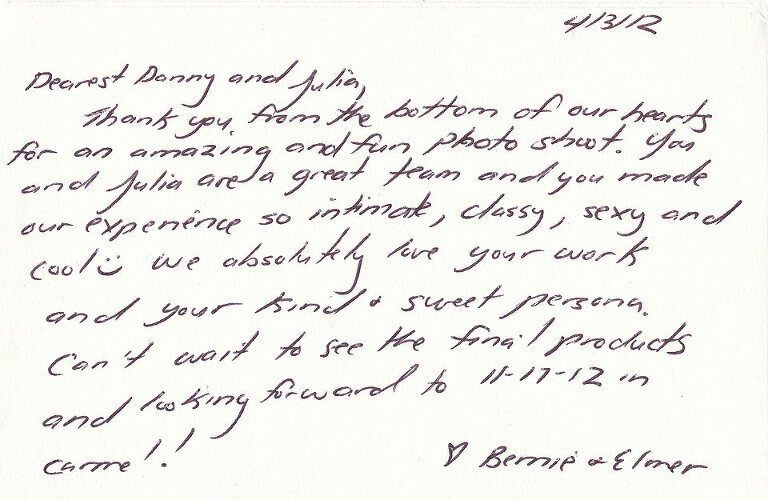 4/3/12
Dearest Danny and Julia,
Thank you from the bottom of our hearts
for an amazing and fun photo shoot. You
and Julia are a great team and you made
our experience so intimate, classy, sexy and
cool☺ We absolutely love your work
and your kind & sweet persona.
Can't wait to see the final products
and looking forward to 11-17-12 in
carme!!
♡ Bernie & Elmer